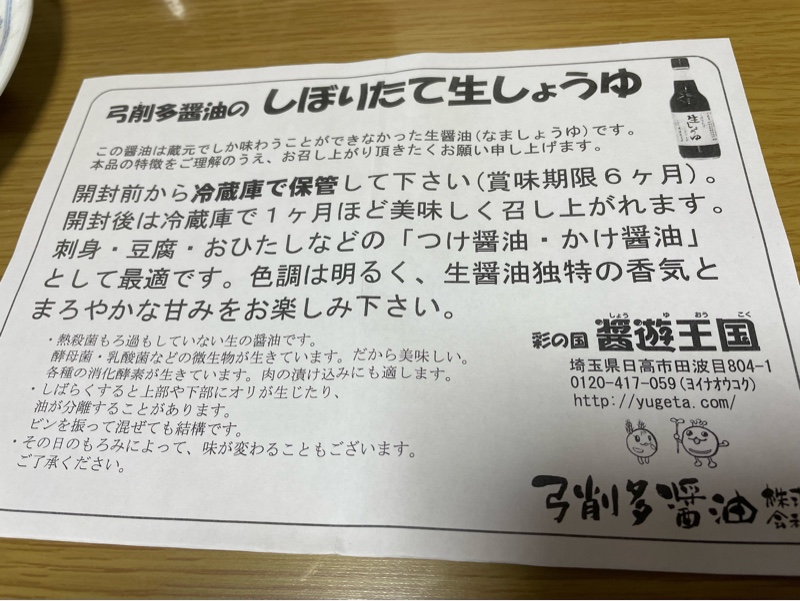 弓削多醤油の しぼりたて生しょうゆ
この醤油は蔵元でしか味わうことができなかった生醤油(なましょうゆ)です。
本品の特徴をご理解のうえ、お召し上がり頂きたくお願い申し上げます。
生しょうゆ
開封前から冷蔵庫で保管して下さい(賞味期限6ヶ月)。
開封後は冷蔵庫で1ヶ月ほど美味しく召し上がれます。
刺身・豆腐・おひたしなどの「つけ醤油・かけ醤油」
として最適です。色調は明るく、生醤油独特の香気と
まろやかな甘みをお楽しみ下さい。
・熱殺菌もろ過もしていない生の醤油です。
酵母菌・乳酸菌などの微生物が生きています。だから美味しい。
各種の消化酵素が生きています。肉の漬け込みにも適します。
・しばらくすると上部や下部にオリが生じたり、
油が分離することがあります。
ビンを振って混ぜても結構です。
・その日のもろみによって、味が変わることもございます。
ご了承ください。
しょう ゆ おう こく
彩の国 醤遊王国
埼玉県日高市田波目804-1
0120-417-059(ヨイナオウコク)
http://yugeta.com/
弓削多醤油